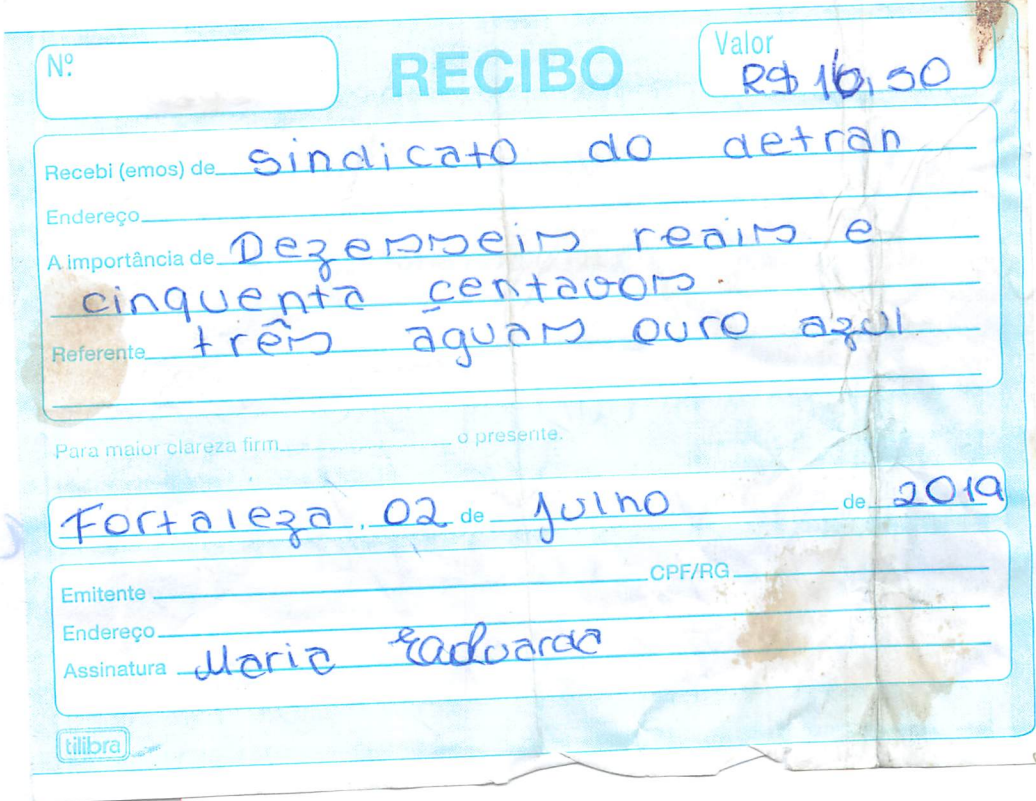 Nº
RECIBO
Valor
R$ 16,50
Recebi (emos) de sindicato do detran
Endereço
A importância de Dezesseis reais e
cinquenta centavos.
Referente três águas ouro azul.
Para maior clareza firm o presente.
Fortaleza, 02 de julho de 2019
Emitente CPF/RG
Endereço
Assinatura Maria Eaduarda
tilibra